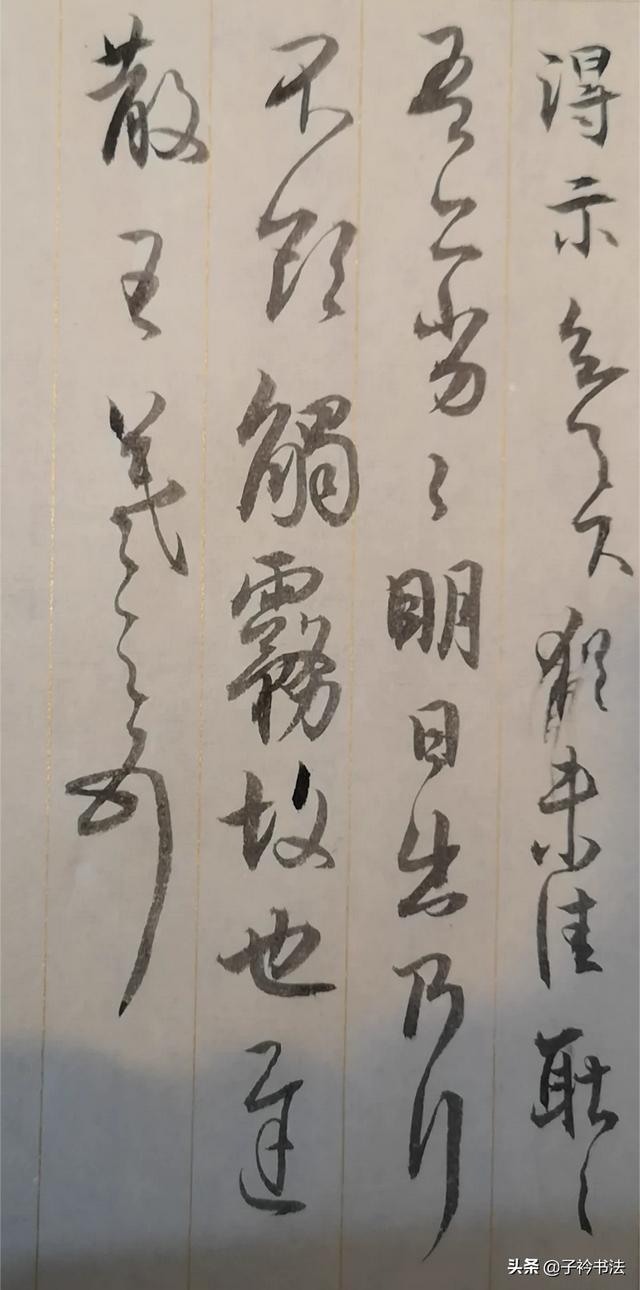 得示知足下猶未佳耿〻
吾亦劣〻明日出乃行
不欲觸霧故也遲
散王羲之頓首
头条 @子衿书法